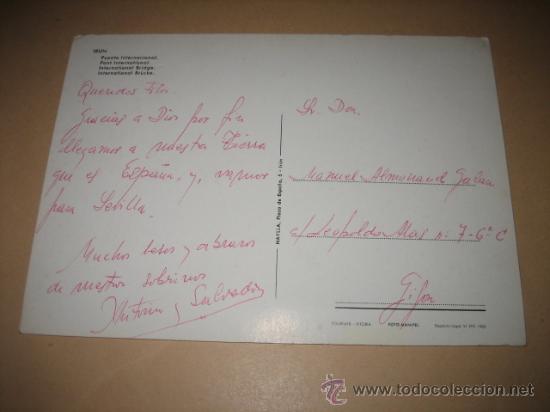 IRUN
Puente Internacional.
Pont International.
International Bridge.
International Brücke.
Queridos Tíos.
Gracias a Dios por fin
llegamos a nuestra Tierra
que es España, y, vamos
para Sevilla.
Muchos besos y abrazos
de nuestros sobrinos
y Salvador
Sr. Don.
Manuel Almonacid Galan
c/ Leopoldo Alas nº 7-6º C
Gijon
todocoleccion
www.todocoleccion.net